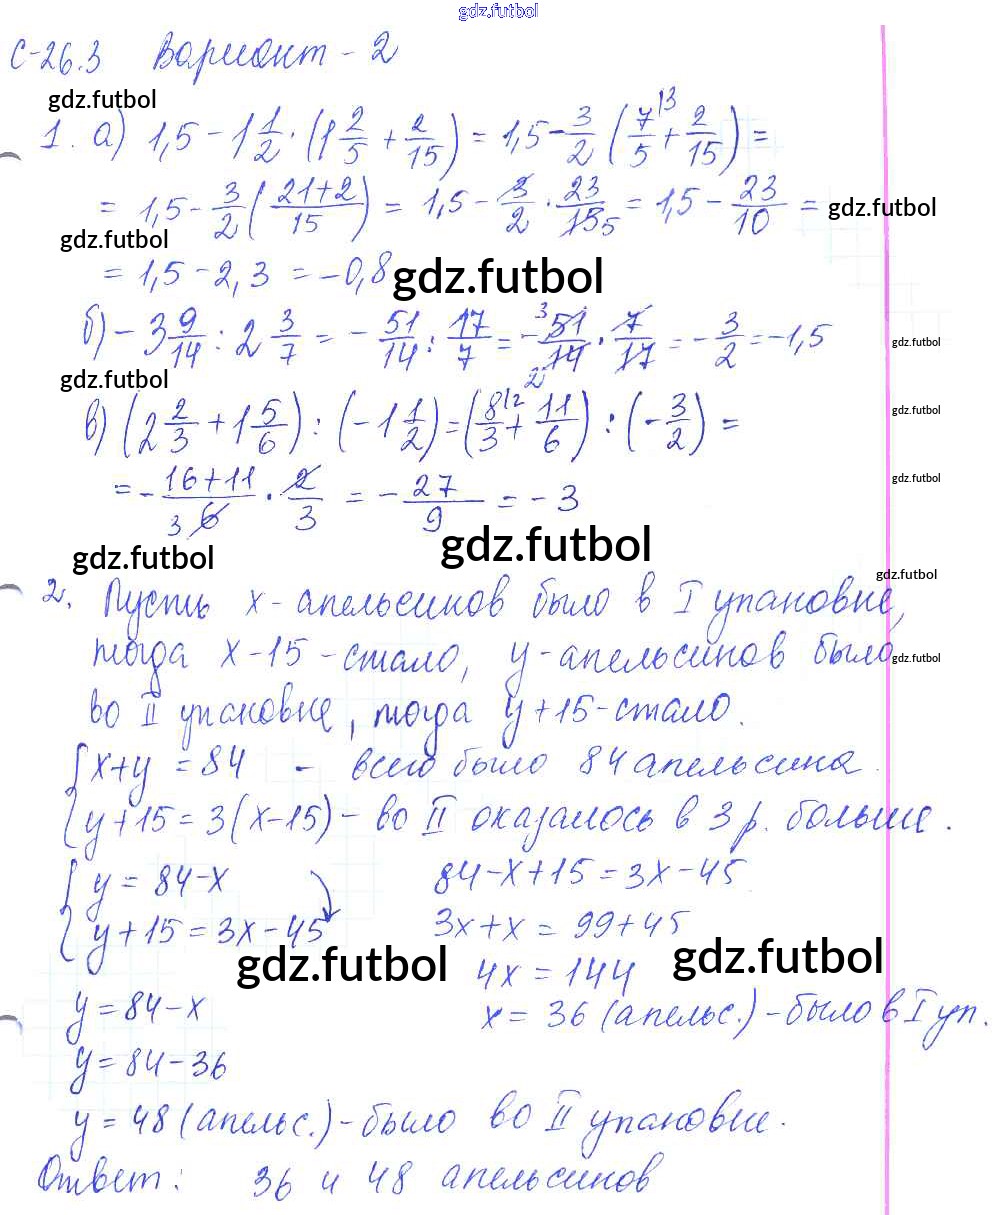 gdz.futbol
С-26.3 Вариант - 2
gdz.futbol
1. а) 1,5 - 1 1/2 · (1 2/5 + 2/15) = 1,5 - 3/2 (7/5 |3 + 2/15) =
= 1,5 - 3/2 (21+2/15) = 1,5 - 3/2 · 23/15 5 = 1,5 - 23/10 = gdz.futbol
gdz.futbol
= 1,5 - 2,3 = -0,8 gdz.futbol
б) - 3 9/14 : 2 3/7 = - 51/14 : 17/7 = - 3 51/14 2 · 7/17 = - 3/2 = -1,5 gdz.futbol
gdz.futbol
в) (2 2/3 + 1 5/6) : (-1 1/2) = (8/3 |2 + 11/6) : (- 3/2) = gdz.futbol
= - 16+11/3 6 · 2/3 = - 27/9 = - 3 gdz.futbol
gdz.futbol gdz.futbol
gdz.futbol
2. Пусть x - апельсинов было в I упаковке,
тогда x - 15 - стало, y - апельсинов было gdz.futbol
во II упаковке, тогда y + 15 - стало.
{ x + y = 84 - всего было 84 апельсина.
y + 15 = 3(x - 15) - во II оказалось в 3 р. больше.
{ y = 84 - x 84 - x + 15 = 3x - 45
y + 15 = 3x - 45 3x + x = 99 + 45
gdz.futbol 4x = 144 gdz.futbol
y = 84 - x x = 36 (апельс.) - было в I уп.
y = 84 - 36
y = 48 (апельс.) - было во II упаковке.
Ответ: 36 и 48 апельсинов